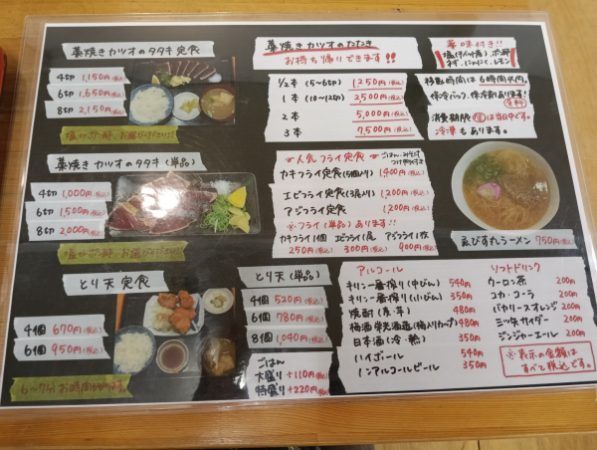 藁焼きカツオのタタキ定食
4切 1,150円(税込)
6切 1,650円(税込)
8切 2,150円(税込)
藁焼きカツオのタタキ(単品)
4切 1,000円(税込)
6切 1,500円(税込)
8切 2,000円(税込)
とり天定食
4個 670円(税込)
6個 950円(税込)
藁焼きカツオのたたき
お持ち帰りできます!!
1/2本(5~6切) 1250円(税込)
1本(10~12切) 2500円(税込)
2本 5,000円(税込)
3本 7,500円(税込)
薬味付き!!
移動時間は6時間以内
保冷バッグ、保冷剤あります!
有料
冷凍もあります。
人気フライ定食
カキフライ定食(5個入り) 1400円(税込)
エビフライ定食(3尾入り) 1200円(税込)
アジフライ定食 1200円(税込)
※フライ(単品)あります!!
カキフライ1個 エビフライ1尾 アジフライ1枚
250円(税込) 300円(税込) 400円(税込)
ゑびす丸ラーメン 750円(税込)
とり天(単品)
4個 520円(税込)
6個 780円(税込)
8個 1,040円(税込)
ごはん
大盛り +110円(税込)
特盛り +220円(税込)
アルコール
キリン一番搾り(中びん) 540円
キリン一番搾り(小びん) 350円
焼酎(麦・芋) 480円
480円
日本酒(冷・熱) 350円
ハイボール 540円
ノンアルコールビール 350円
ソフトドリンク
ウーロン茶 200円
コカ・コーラ 200円
バヤリースオレンジ 200円
三ツ矢サイダー 200円
ジンジャーエール 200円
※表示の金額は
すべて税込です。